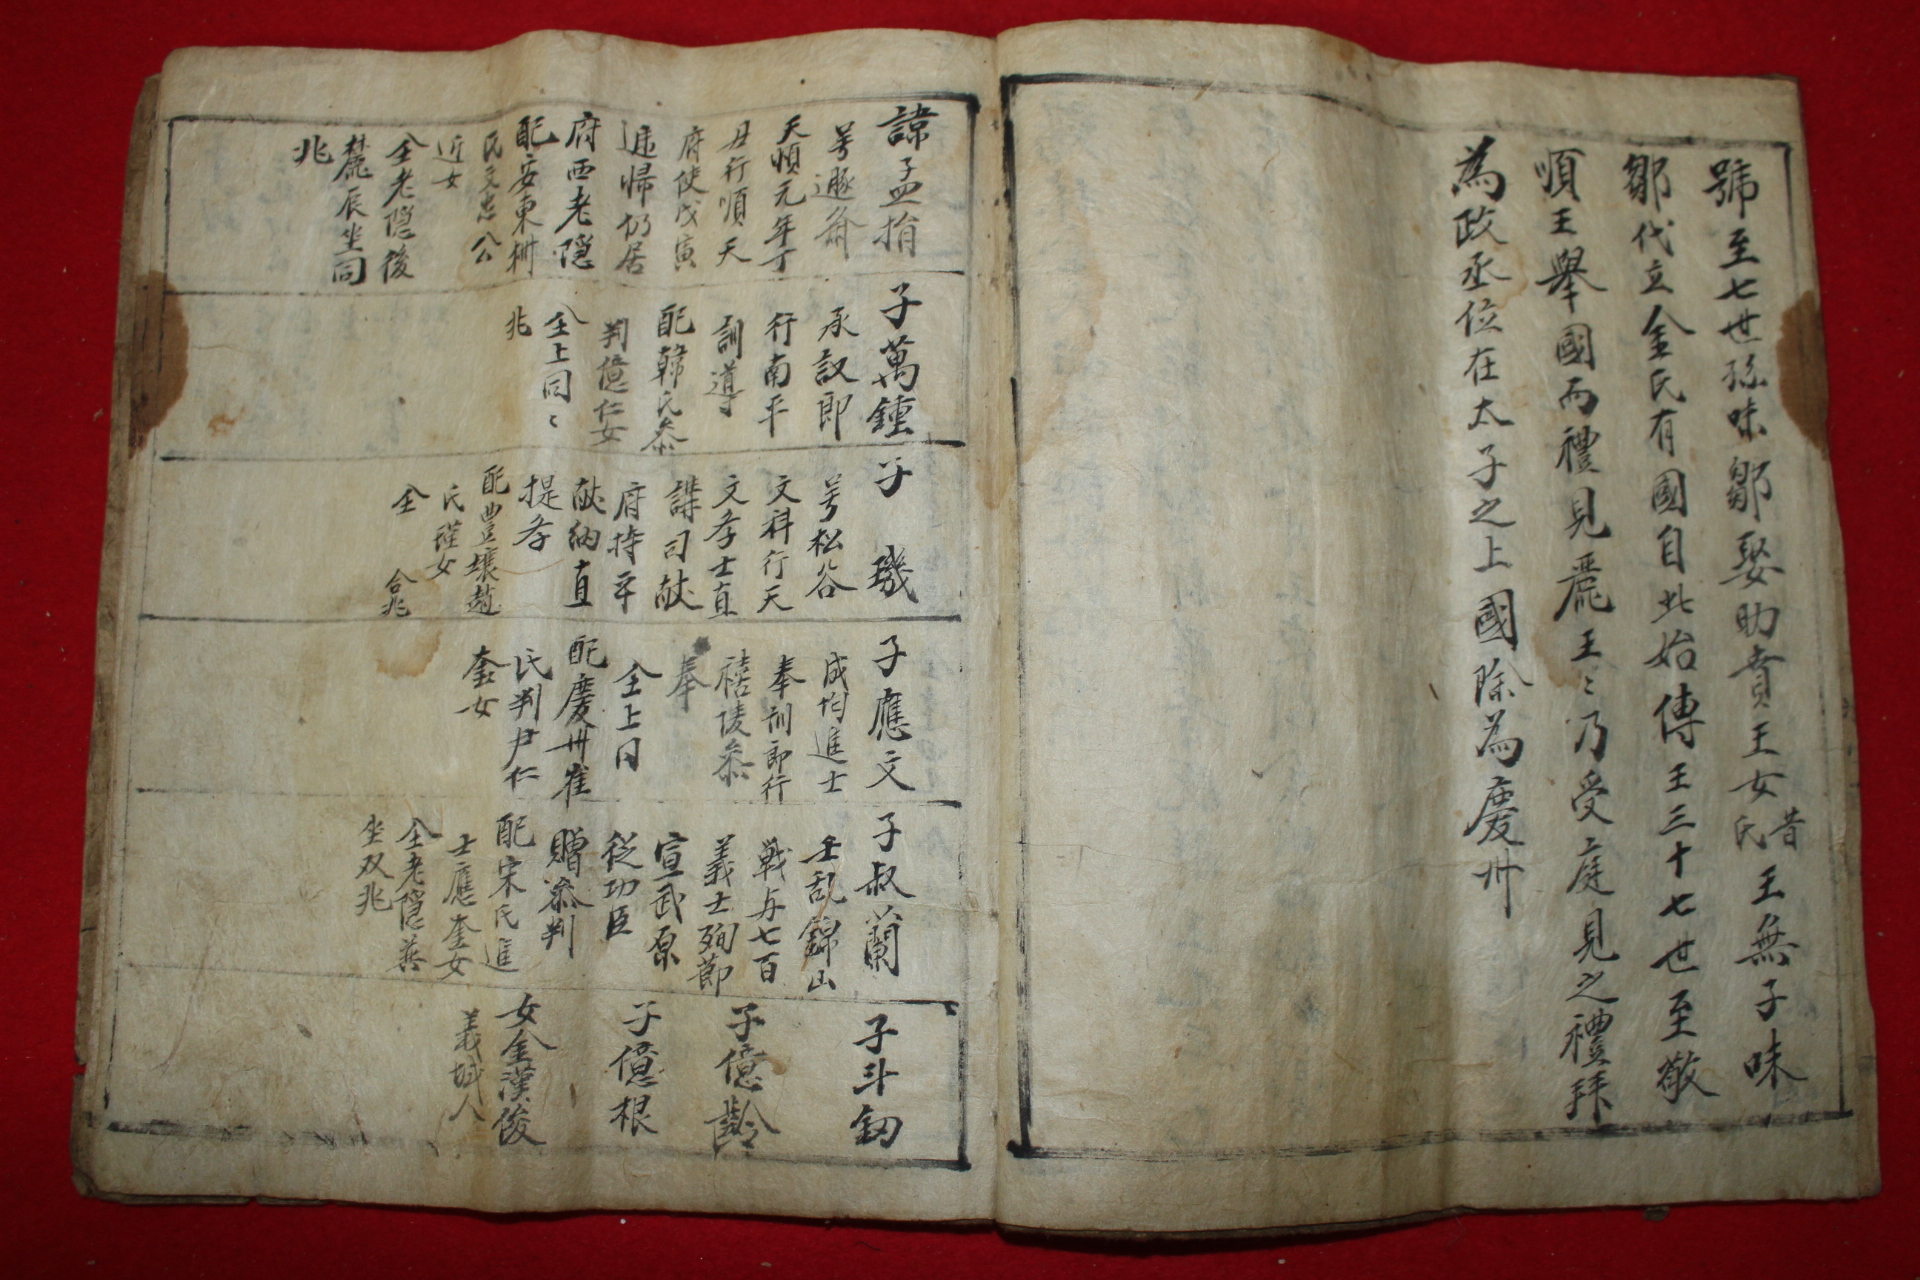 號至七世孫味鄒娶助賁王女昔氏王無子味
鄒代立金氏有國自此始傳王三十七世至敬
順王舉國而禮見麗王〻乃受庭見之禮拜
為政丞位在太子之上國除為慶州
諱孟
号遯齋
天順元年丁
丑行順天
府使戊寅
遞歸仍居
府西老隠
配安東
氏文忠公
近女
仝老隠後
麓辰坐同
兆
子萬鍾
承訓郎
行南平
訓導
配韓氏叅
判億仁女
仝上同〻
兆
子璣
号松谷
文科行天
文孝士直
講司献
府持平
献納直
提孝
配豊壤趙
氏瑾女
仝
合兆
子應文
成均進士
奉訓郎行
禧陵叅
奉
仝上同
配慶州崔
氏判尹仁
奎女
子叔蘭
壬乱錦山
戰与七百
義士殉節
宣武原
從功臣
贈叅判
配宋氏進
士應奎女
仝老隠善
坐双兆
子斗釖
子億齡
子億根
女金漢俊
義城人